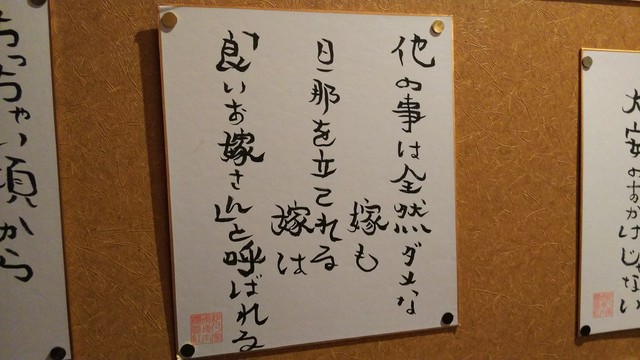 大安のおかげじゃない
他の事は全然ダメな
嫁も
旦那を立てれる
嫁は
「良いお嫁さん」と呼ばれる
ちっちゃい頃から